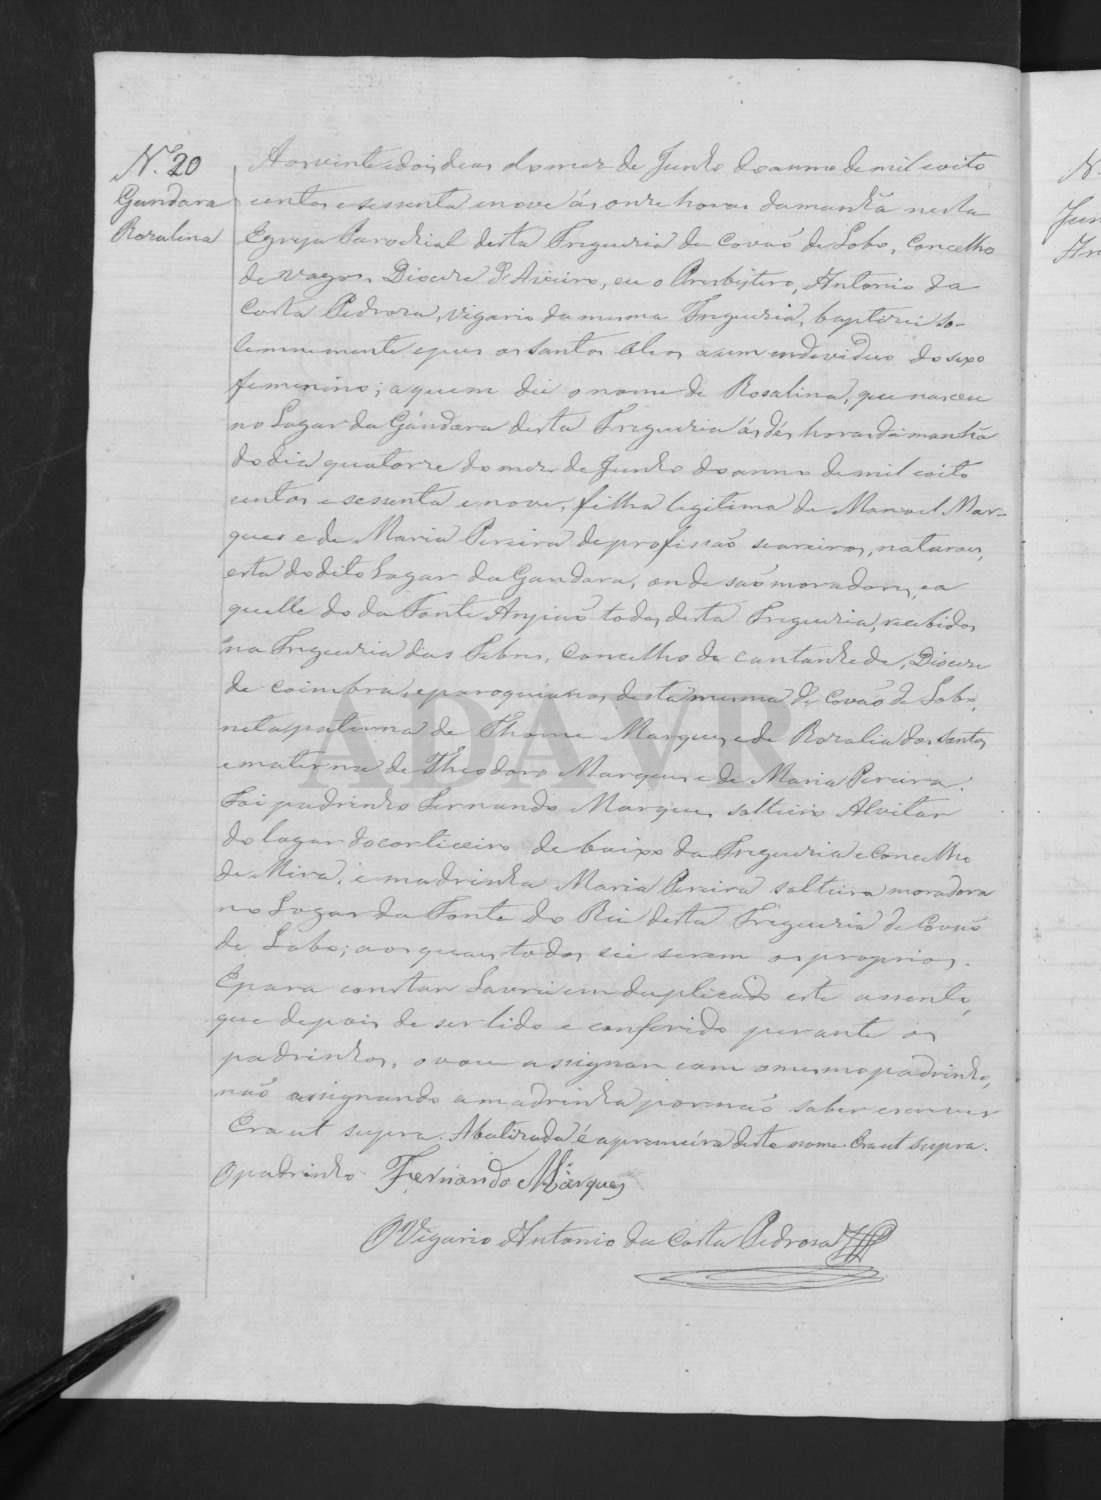 N.º 20
Gandara
Rozalina
Aos vinte e dois dias do mez de Junho do anno de mil e oito
centos e sessenta e nove ás onze horas da manhã nesta
Egreja Parochial desta Freguezia de Covaõ de Lobo, Concelho
de Vagos, Diocese d'Aveiro, eu o Presbytero, Antonio da
Costa Pedroza, Vigario da mesma Freguezia, baptizei so-
lemnemente e pus os santos oleos a um individuo do sexo
femenino; a quem dei o nome de Rosalina, que nasceu
no Lugar da Gándara desta Freguezia ás dés horas da manhã
do dia quatorze do mez de Junho do anno de mil e oito
centos e sessenta e nove, filha legitima de Manoel Mar-
ques e de Maria Pereira de profissaõ seareiros, naturaes,
esta do dito Lugar da Gandara, onde saõ moradores, e a
quelle do da Fonte Anjiaõ todos desta Freguezia, recebidos
na Freguezia das Febres, Concelho de Cantanhede, Diocese
de Coimbra, e paroquianos desta mesma de Covaõ de Lobo,
neta paterna de Thome Marques, e de Rozalia dos Santos
e materna de Theodoro Marques e de Maria Pereira.
Foi padrinho Fernando Marques, solteiro Alvitar
do lugar do corticeiro de baixo da Freguezia e Concelho
de Mira, e madrinha Maria Pereira solteira moradora
no Lugar da Fonte do Rei desta Freguezia de Covaõ
de Lobo; aos quaes todos sei serem os proprios.
E para constar Lavrei em duplicado este assento,
que depois de ser lido e conferido perante os
padrinhos, o vou assignar com o mesmo padrinho,
naõ assignando a madrinha por naõ saber escrever
Era ut supra. A batizada é a premeira deste nome Era ut supra.
O padrinho Fernando Marques
O Vigario Antonio da Costa Pedrosa
ADAVR